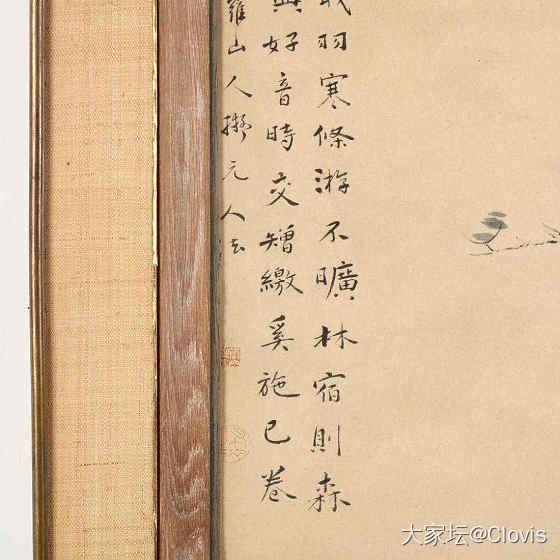 羽寒條游不曠林宿則森
好音時交矰繳奚施已卷
羅山人擬元人法
大家坛@Clovis